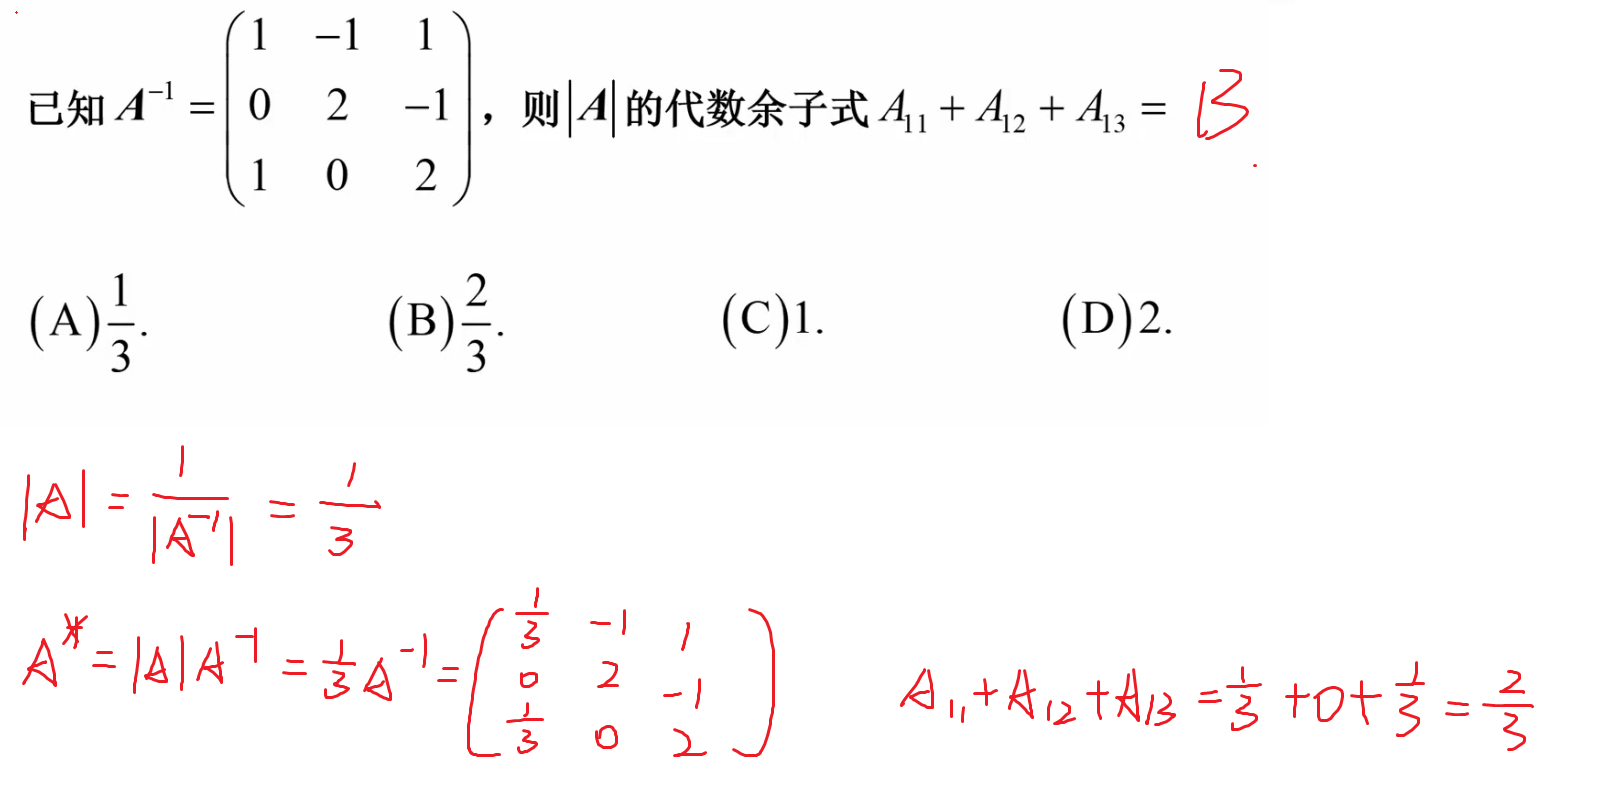 已知 A⁻¹ = (1 −1 1; 0 2 −1; 1 0 2), 则|A|的代数余子式 A₁₁ + A₁₂ + A₁₃ = B
(A) 1/3. (B) 2/3. (C)1. (D)2.
|A| = 1/|A⁻¹| = 1/3
A* = |A|A⁻¹ = 1/3 A⁻¹ = (1/3 −1 1; 0 2 −1; 1/3 0 2)
A₁₁+A₁₂+A₁₃ = 1/3 + 0 + 1/3 = 2/3